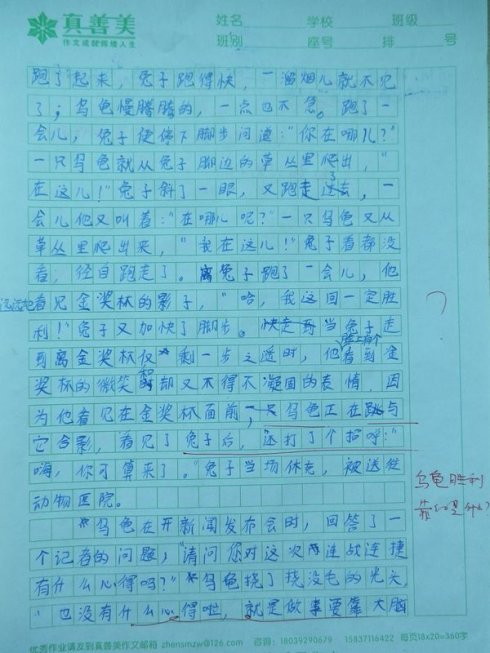 真善美
作文成就辉煌人生
姓名 学校 班级
班别 座号 排 号
跑了起来，兔子跑得快，一溜烟儿就不见
了；乌龟慢腾腾的，一点也不急。跑了一
会儿，兔子便停下脚步问道："你在哪儿？"
一只乌龟就从兔子脚边的草丛里爬出，"
在这儿！"兔子斜了一眼，又跑走了，一
会儿他又叫着："在哪儿呢？"一只乌龟又从
草丛里爬出来，"我在这儿！"兔子看都没
看，径自跑走了。兔子跑了一会儿，他
远远地看见金奖杯的影子，"哈，我这回一定胜
利！"兔子又加快了脚步。当兔子走
到离金奖杯仅剩一步之遥时，他看到金
奖杯的微笑却又不得不凝固的表情，因
为他看见在金奖杯面前，一只乌龟正在与
它合影，看见了兔子后，还打了个招呼："
嗨，你可算来了。"兔子当场休克，被送往
动物医院。
乌龟在开新闻发布会时，回答了一
个记者的问题，"请问你对这次连战连捷
有什么心得吗？"乌龟挠了挠没毛的光头
"也没有什么心得啦，就是做事要靠大脑
乌龟胜利
靠的是什么？
优秀作业请发到真善美作文邮箱 zhensmzw@126.com 咨询：18039290679 15837116422 每页18x20=360字